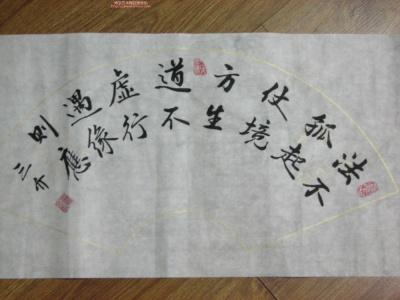 法不
孤起
仗境
方生
道不
虚行
遇缘
则應
三介